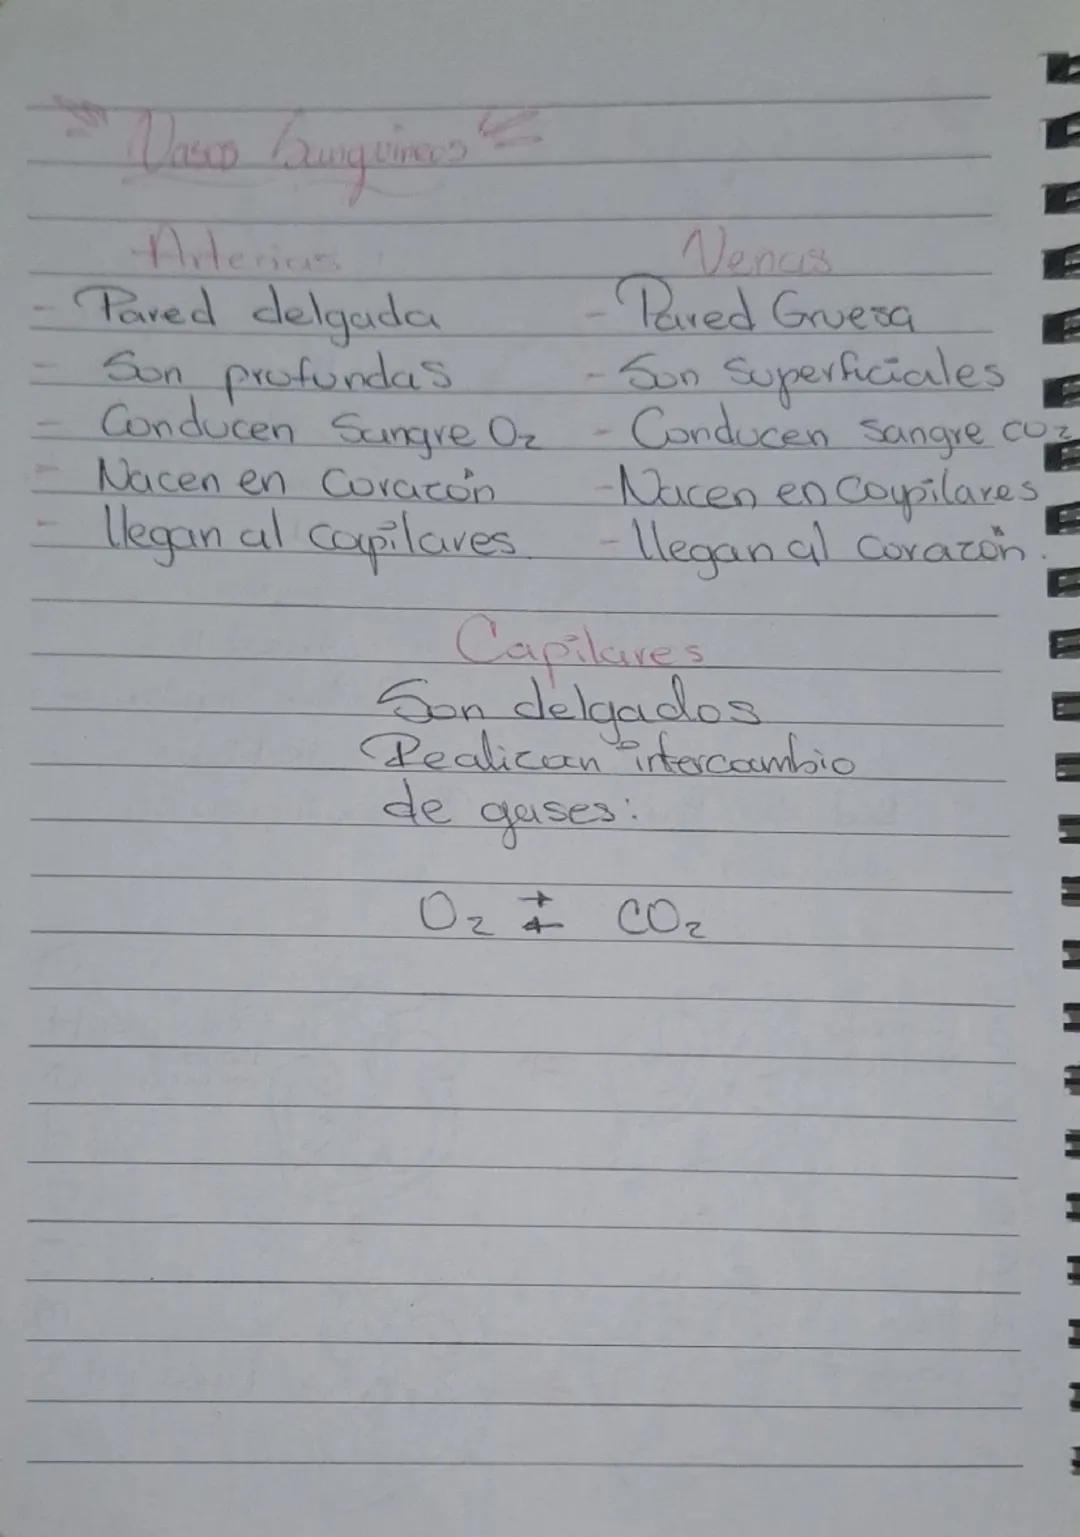 Vasos Sanguineos
Arterias
- Pared delgada
- Son profundas
- Conducen Sangre O₂
- Nacen en Corazón
- llegan al capilares.
Venas
- Pared Gruesa
- Son Superficiales
- Conducen sangre CO₂
- Nacen en Capilares
- llegan al corazón.
Capilares
Son delgados
Realizan intercambio
de gases:
O₂ ⇄ CO₂